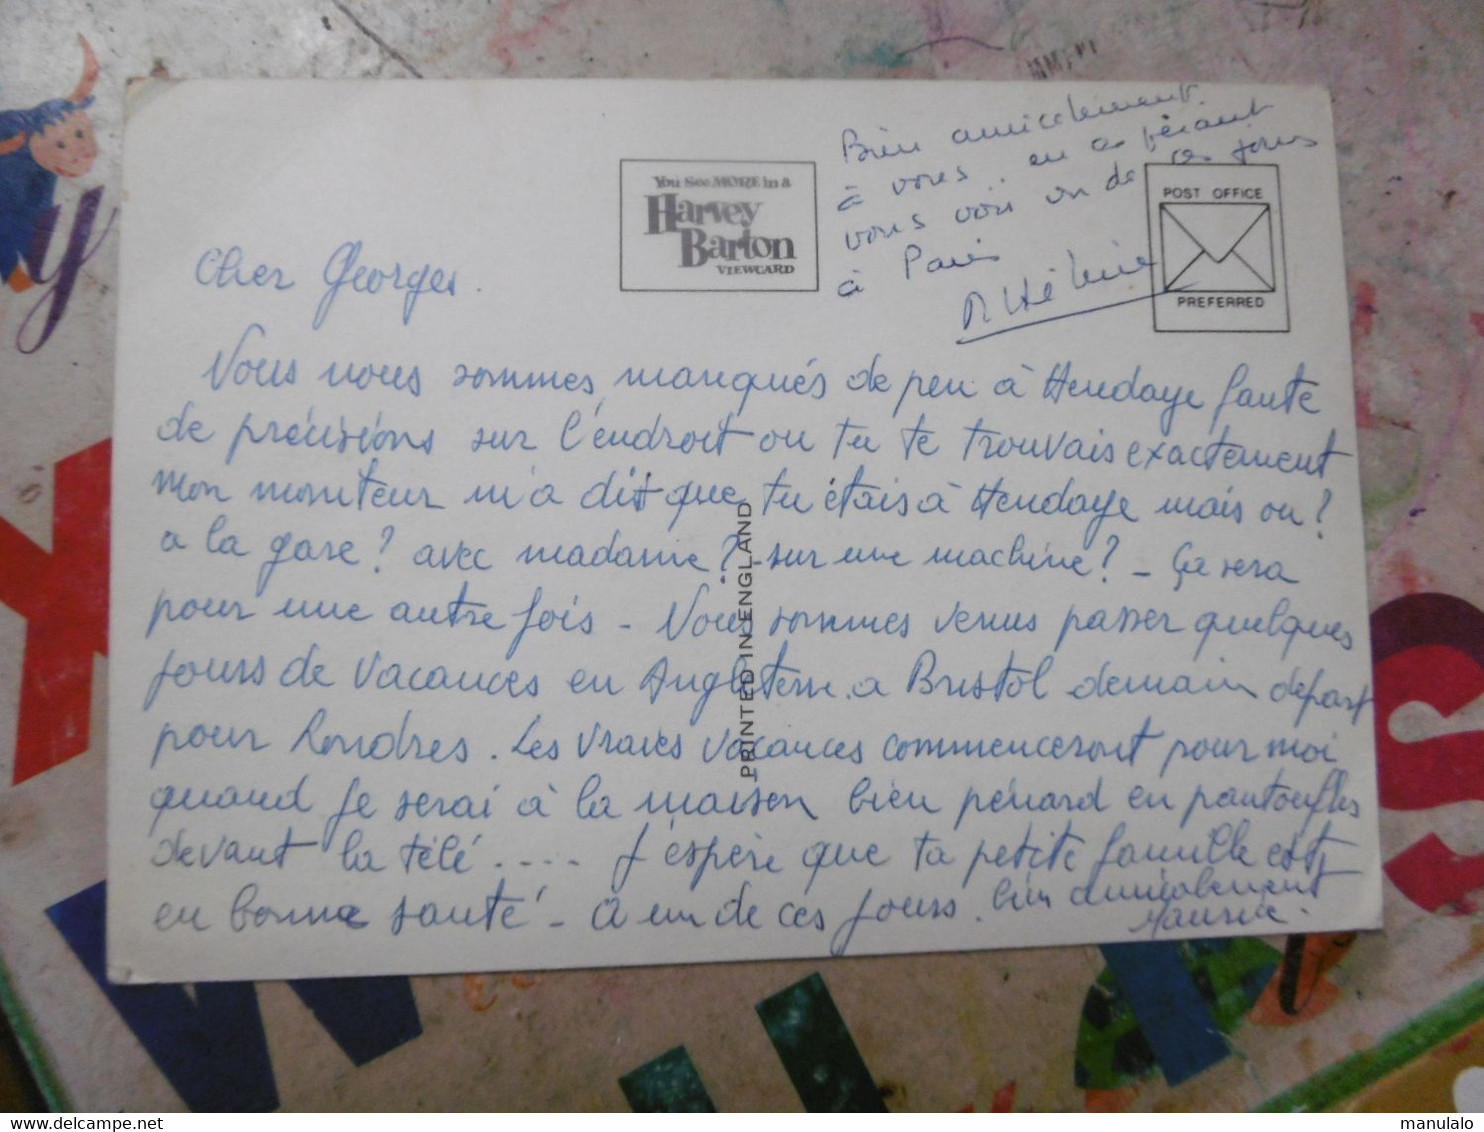 Bien amicalement
à vous.. en espérant
vous voir un de ces jours
à Paris
M Hélène
You See MORE in a
Harvey
Barton
VIEWCARD
POST OFFICE
PREFERRED
Cher Georges.
Vous nous sommes manqués de peu à Hendaye faute
de précisions sur l'endroit ou tu te trouvais exactement
mon moniteur m'a dit que tu étais à Hendaye mais ou?
a la gare? avec madame? - sur une machine? - ça sera
pour une autre fois - Nous sommes venus passer quelques
jours de vacances en Angleterre a Bristol demain départ
pour Londres. Les vraies vacances commenceront pour moi
quand je serai à la maison bien pénard en pantoufles
devant la télé ..... J'espère que ta petite famille est
en bonne santé - a un de ces jours. bien amicalement
Maurice.
PRINTED IN ENGLAND
manulalo
www.delcampe.net